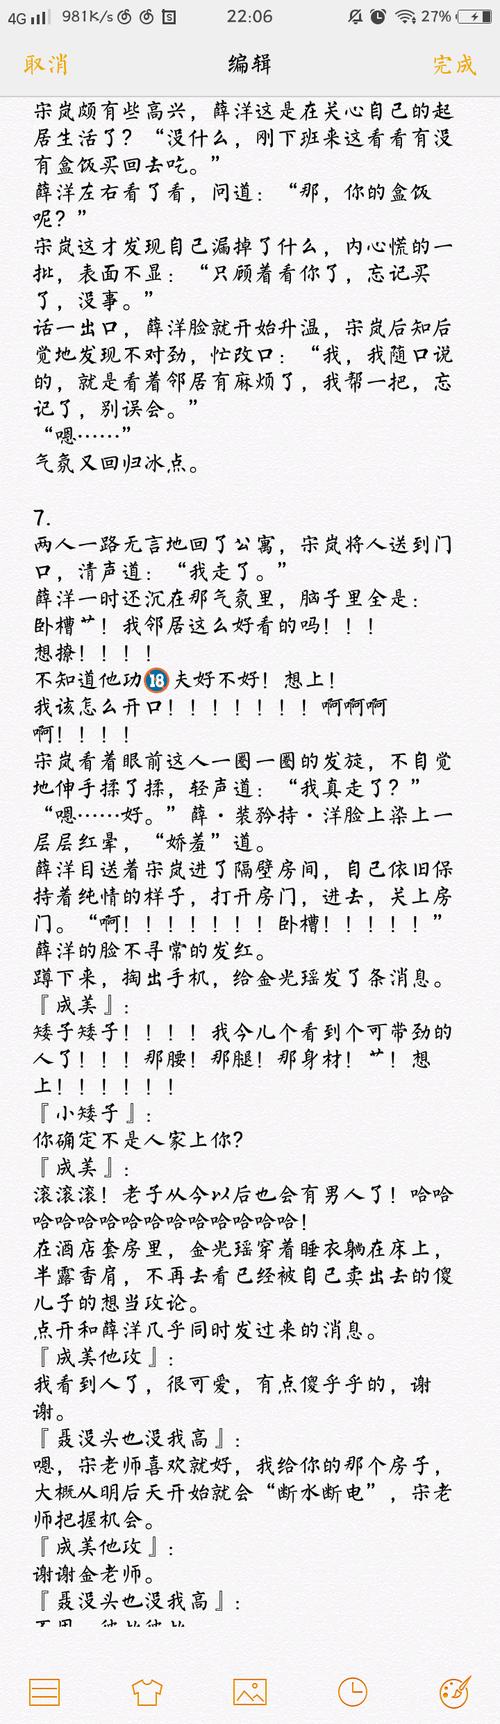 4G 981K/s 22:06 27%
取消 编辑 完成
宋岚颇有些高兴，薛洋这是在关心自己的起
居生活了？“没什么，刚下班来这看看有没
有盒饭买回去吃。”
薛洋左右看了看，问道：“那，你的盒饭
呢？”
宋岚这才发现自己漏掉了什么，内心慌的一
批，表面不显：“只顾着看你了，忘记买
了，没事。”
话一出口，薛洋脸就开始升温，宋岚后知后
觉地发现不对劲，忙改口：“我，我随口说
的，就是看着邻居有麻烦了，我帮一把，忘
记了，别误会。”
“嗯……”
气氛又回归冰点。
7.
两人一路无言地回了公寓，宋岚将人送到门
口，清声道：“我走了。”
薛洋一时还沉在那气氛里，脑子里全是：
卧槽艹！我邻居这么好看的吗！！！
想撩！！！！
不知道他功🔞夫好不好！想上！
我该怎么开口！！！！！！！啊啊啊
啊！！！！
宋岚看着眼前这人一圈一圈的发旋，不自觉
地伸手揉了揉，轻声道：“我真走了？”
“嗯……好。”薛·装矜持·洋脸上染上一
层层红晕，“娇羞”道。
薛洋目送着宋岚进了隔壁房间，自己依旧保
持着纯情的样子，打开房门，进去，关上房
门。“啊！！！！！！！卧槽！！！！！”
薛洋的脸不寻常的发红。
蹲下来，掏出手机，给金光瑶发了条消息。
『成美』：
矮子矮子！！！！我今儿个看到个可带劲的
人了！！！那腰！那腿！那身材！艹！想
上！！！！！！
『小矮子』：
你确定不是人家上你？
『成美』：
滚滚滚！老子从今以后也会有男人了！哈哈
哈哈哈哈哈哈哈哈哈哈哈哈！
在酒店套房里，金光瑶穿着睡衣躺在床上，
半露香肩，不再去看已经被自己卖出去的傻
儿子的想当攻论。
点开和薛洋几乎同时发过来的消息。
『成美他攻』：
我看到人了，很可爱，有点傻乎乎的，谢
谢。
『聂没头也没我高』：
嗯，宋老师喜欢就好，我给你的那个房子，
大概从明后天开始就会“断水断电”，宋老
师把握机会。
『成美他攻』：
谢谢金老师。
『聂没头也没我高』：